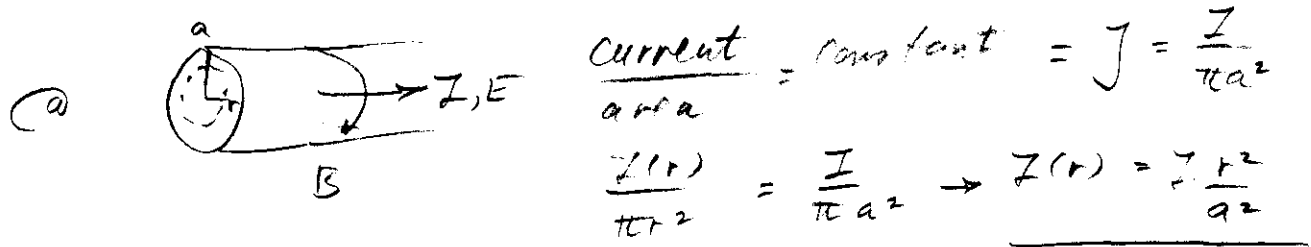 a
(a
r
I, E
B
current / area = constant = J = I / πa²
I(r) / πr² = I / πa² → I(r) = I r² / a²